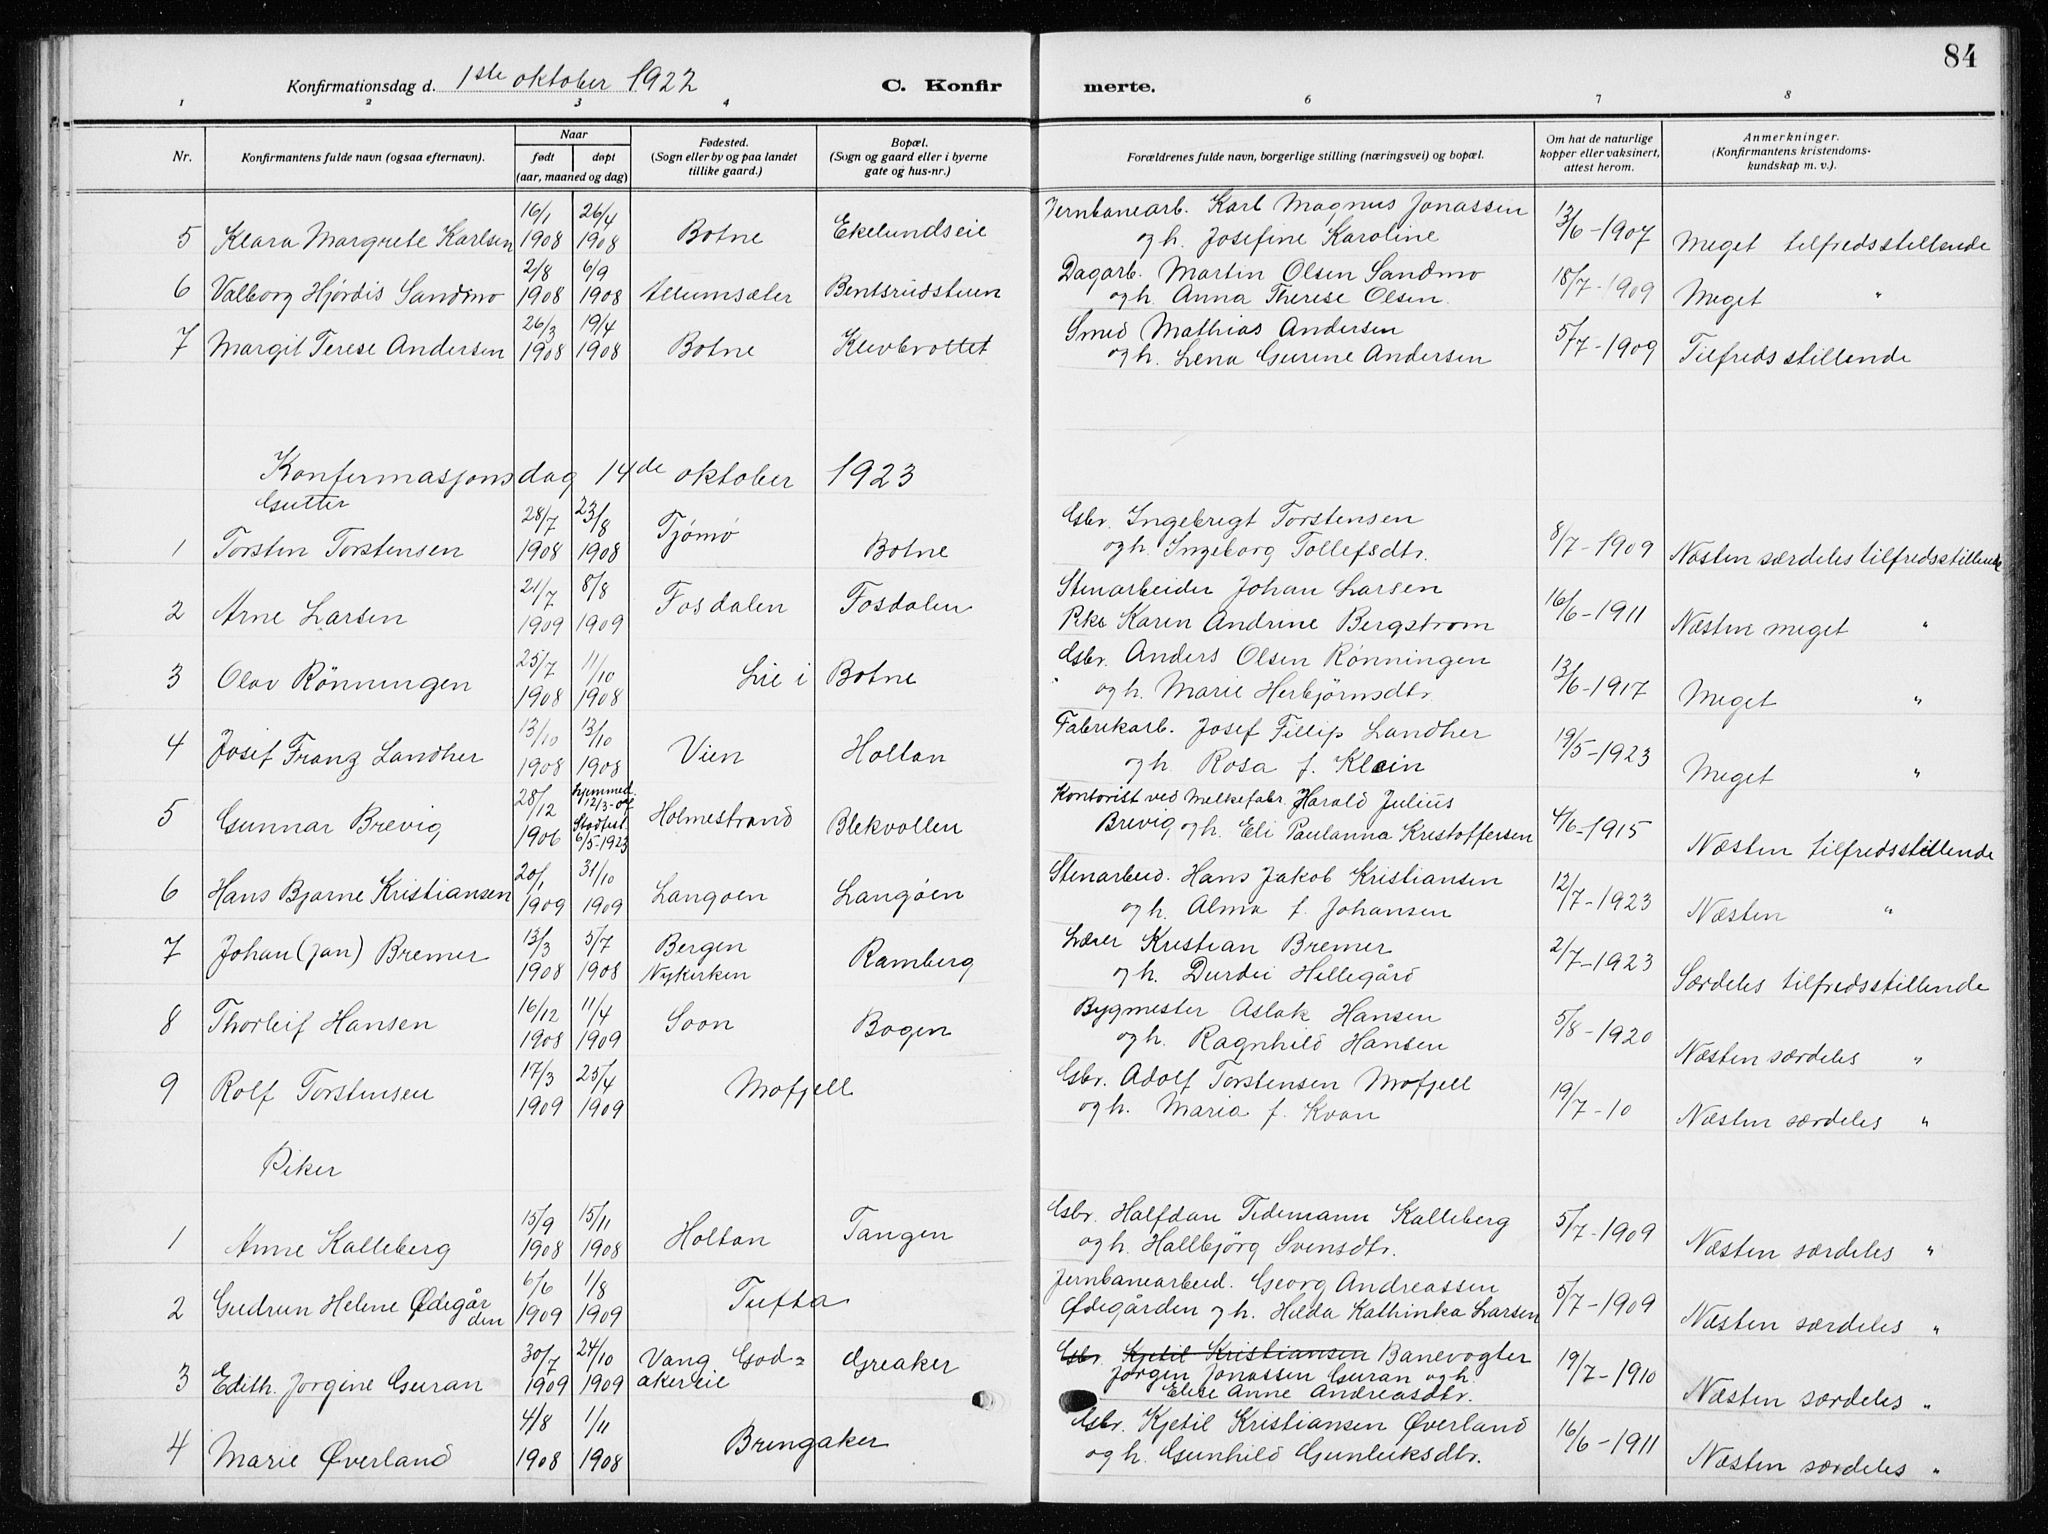 84
Konfirmationsdag d. 1ste oktober 1922 C. Konfir merte.
1 2 3 4 6 7 8
Nr. Konfirmantens fulde navn (ogsaa efternavn). Naar født døpt (aar, maaned og dag) Fødested. (Sogn eller by og paa landet tillike gaard.) Bopæl. (Sogn og gaard eller i byerne gate og hus-nr.) Forældrenes fulde navn, borgerlige stilling (næringsvei) og bopæl. Om hat de naturlige kopper eller vaksinert, attest herom. Anmerkninger. (Konfirmantens kristendomskundskap m. v.).
5 Klara Margrete Karlsen 16/1 1908 26/4 1908 Botne Ekelundseie Jernbanearb. Karl Magnus Jonassen og h. Josefine Karoline 13/6-1907 Meget tilfredsstillende
6 Valborg Hjørdis Sandmo 2/8 1908 6/9 1908 Allumsæter Bentsrudstuen Dagarb. Martin Olsen Sandmo og h. Anna Therese Olsen. 18/7-1909 Meget "
7 Margit Terese Andersen 26/3 1908 19/4 1908 Botne Klevbrottet Smed Mathias Andersen og h. Lena Gurine Andersen 5/7-1909 Tilfredsstillende
Konfermasjonsdag 14de oktober 1923
Gutter
1 Torstin Torstensen 28/7 1908 23/8 1908 Tjømø Botne Gbr. Ingebregt Torstensen og h. Ingeborg Tollefsdtr. 8/7-1909 Næsten særdeles tilfredsstillende
2 Arne Larsen 21/7 1909 8/8 1909 Fosdalen Fosdalen Stenarbeider Johan Larsen Pike Karen Andrine Bergstrøm 16/6-1911 Næsten meget "
3 Olav Rønningen 25/7 1908 11/10 1908 Lie i Botne Gbr. Anders Olsen Rønningen og h. Marie Herbjørnsdtr. 13/6-1917 Meget "
4 Josef Franz Landher 13/10 1908 13/10 1908 Vien Holtan Fabrikarb. Josef Fillip Landher og h. Rosa f. Klein 19/5-1923 Meget "
5 Gunnar Brevig 28/12 1906 hjemmed. 12/3-07 Stadfest 6/5-1923 Holmestrand Blekvollen Kontorist ved Melkefabr. Harald Julius Brevig og h. Eli Paulanna Kristoffersen 4/6-1915 Næsten tilfredsstillende
6 Hans Bjarne Kristiansen 20/1 1909 31/10 1909 Langøen Langøen Stenarbeid. Hans Jakob Kristiansen og h. Alma f. Johansen 12/7-1923 Næsten "
7 Johan (Jan) Bremer 13/3 1908 5/7 1908 Bergen Nykirken Ramberg Lærer Kristian Bremer og h. Durdei Hellegård 2/7-1923 Særdeles tilfredsstillende
8 Thorleif Hansen 16/12 1908 11/4 1909 Soon Bogen Bygmester Aslak Hansen og h. Ragnhild Hansen 5/8-1920 Næsten særdeles "
9 Rolf Torstensen 17/3 1909 25/4 1909 Mofjell Gbr. Adolf Torstensen Mofjell og h. Maria f. Kvan 19/7-10 Næsten særdeles "
Piker
1 Anne Kalleberg 15/9 1908 15/11 1908 Holtan Tangen Gbr. Halfdan Tidemann Kalleberg og h. Hallbjörg Svensdtr. 5/7-1909 Næsten særdeles "
2 Gudrun Helene Ødegården 6/6 1909 1/8 1909 Tufta Jernbanearbeid. Georg Andreassen Ødegården og h. Hilda Kathinka Larsen 5/7-1909 Næsten særdeles "
3 Edith Jørgine Guran 30/7 1909 24/10 1909 Vang. Godakereie Greaker Gbr. Kjetil Kristiansen Banevogter Jørgen Jonassen Guran og h. Elise Anne Andreasdtr. 19/7-1910 Næsten særdeles "
4 Marie Øverland 4/8 1908 1/11 1908 Bringaker Gbr. Kjetil Kristiansen Øverland og h. Gunhild Gunleiksdtr. 16/6-1911 Næsten særdeles "